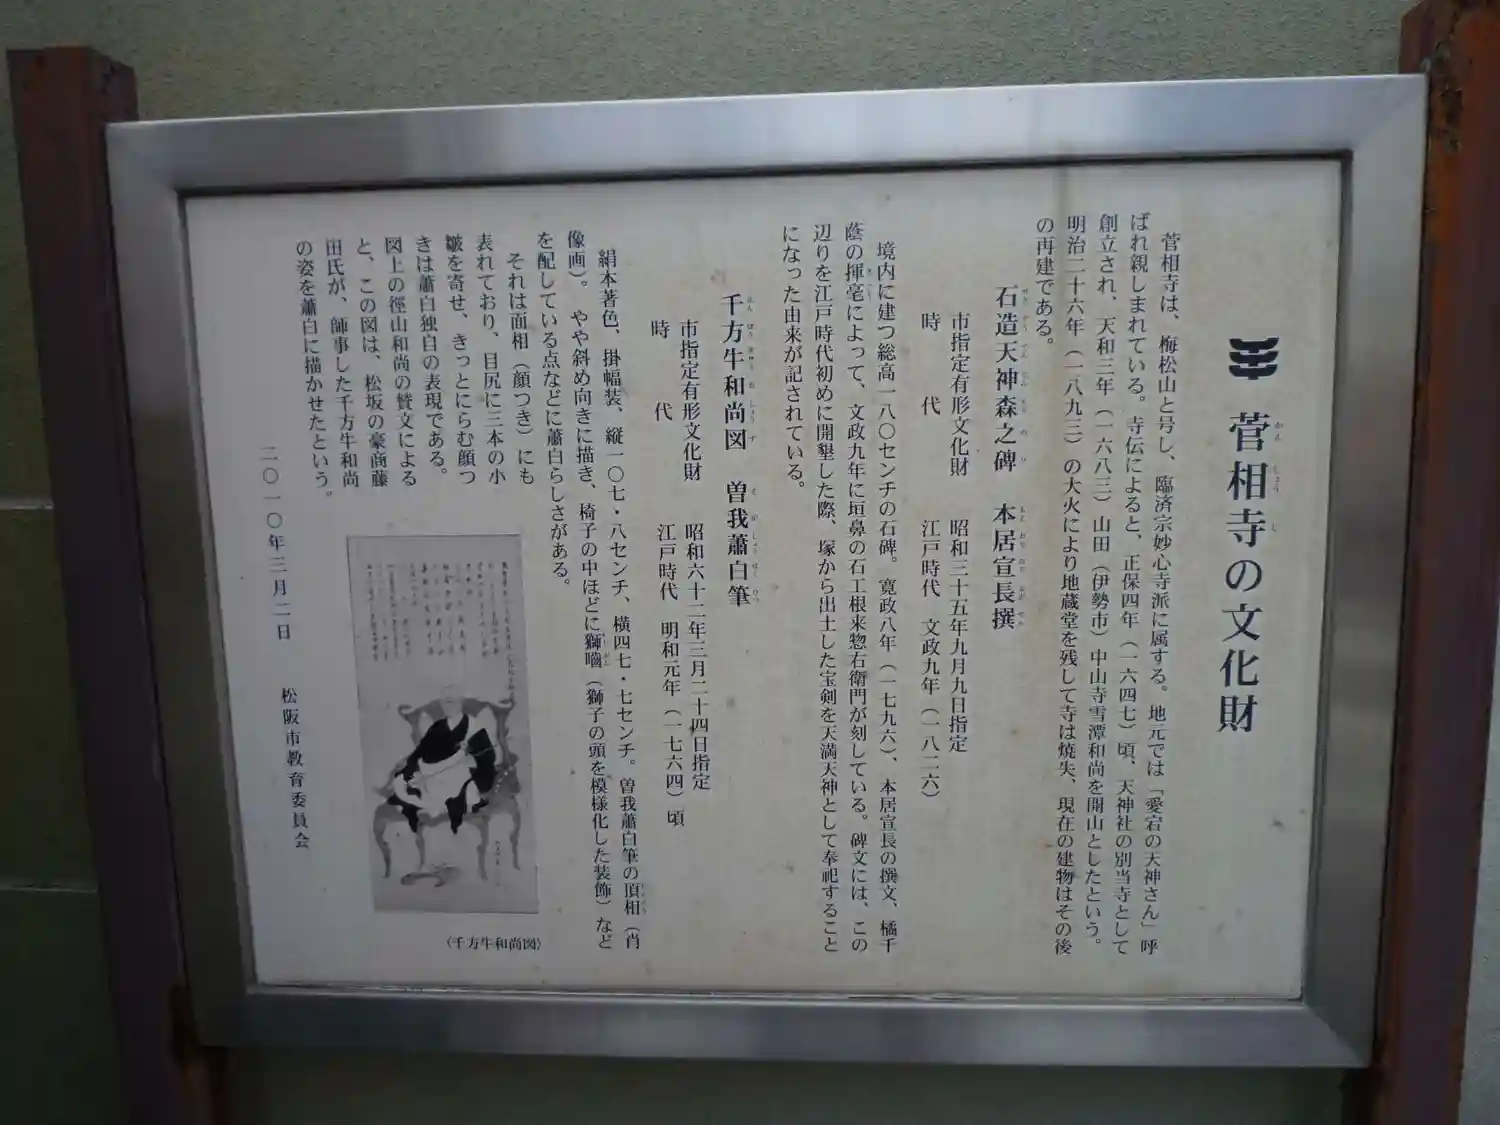 菅相寺の文化財
かんしょうじ
菅相寺は、梅松山と号し、臨済宗妙心寺派に属する。地元では「愛宕の天神さん」呼
ばれ親しまれている。寺伝によると、正保四年（一六四七）頃、天神社の別当寺として
創立され、天和三年（一六八三）山田（伊勢市）中山寺雪潭和尚を開山としたという。
明治二十六年（一八九三）の大火により地蔵堂を残して寺は焼失、現在の建物はその後
の再建である。
石造天神森之碑　本居宣長撰
市指定有形文化財　昭和三十五年九月九日指定
時代　江戸時代　文政九年（一八二六）
境内に建つ総高一八〇センチの石碑。寛政八年（一七九六）、本居宣長の撰文、橘千
蔭の揮毫によって、文政九年に垣鼻の石工根来惣右衛門が刻している。碑文には、この
辺りを江戸時代初めに開墾した際、塚から出土した宝剣を天満天神として奉祀すること
になった由来が記されている。
千方牛和尚図　曽我蕭白筆
市指定有形文化財　昭和六十二年三月二十四日指定
時代　江戸時代　明和元年（一七六四）頃
絹本著色、掛幅装、縦一〇七・八センチ、横四七・七センチ。曽我蕭白筆の頂相（肖
像画）。やや斜め向きに描き、椅子の中ほどに獅嚙（獅子の頭を模様化した装飾）など
を配している点などに蕭白らしさがある。
それは面相（顔つき）にも
表れており、目尻に三本の小
皺を寄せ、きっとにらむ顔つ
きは蕭白独自の表現である。
図上の徑山和尚の賛文による
と、この図は、松坂の豪商藤
田氏が、師事した千方牛和尚
の姿を蕭白に描かせたという。
二〇一〇年三月二日　松阪市教育委員会
（千方牛和尚図）